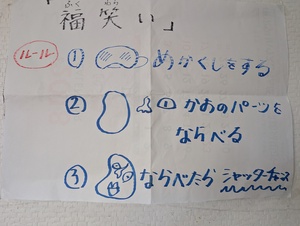 「福笑い」
ふく わら
ルール
① めかくしをする
② ① かおのパーツを
ならべる
③ ならべたら シャッターチャンス